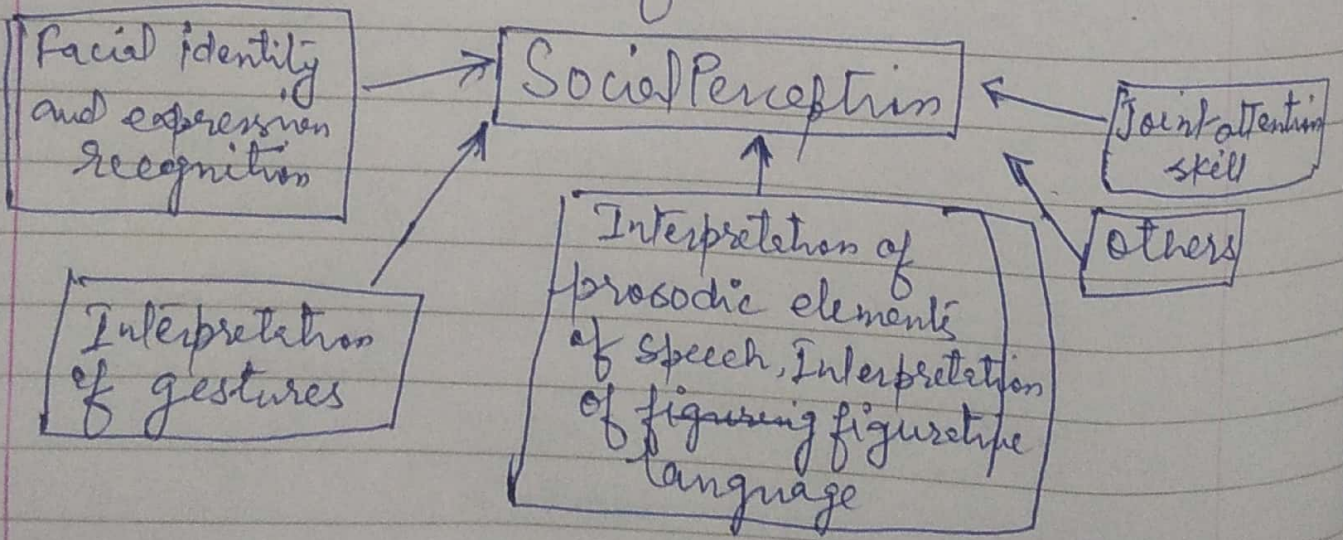 Facial identity
and expression
recognition
Social Perception
Joint attention
skill
Others
Interpretation
of gestures
Interpretation of
prosodic elements
of speech, Interpretation
of figuring figurative
language